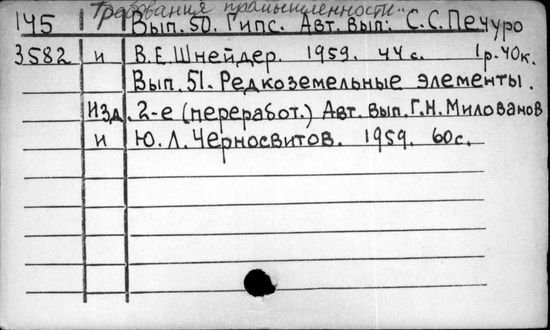 Требования промышленности..
145 Вып. 50. Гипс. Авт. вып: С.С.Печуро
3582 и В.Е.Шнейдер. 1959. 44 с. 1р.40к.
Вып. 51. Редкоземельные элементы.
Изд. 2-е (переработ.) Авт. вып. Г.Н.Милованов
и Ю.Л.Черносвитов. 1959. 60с.